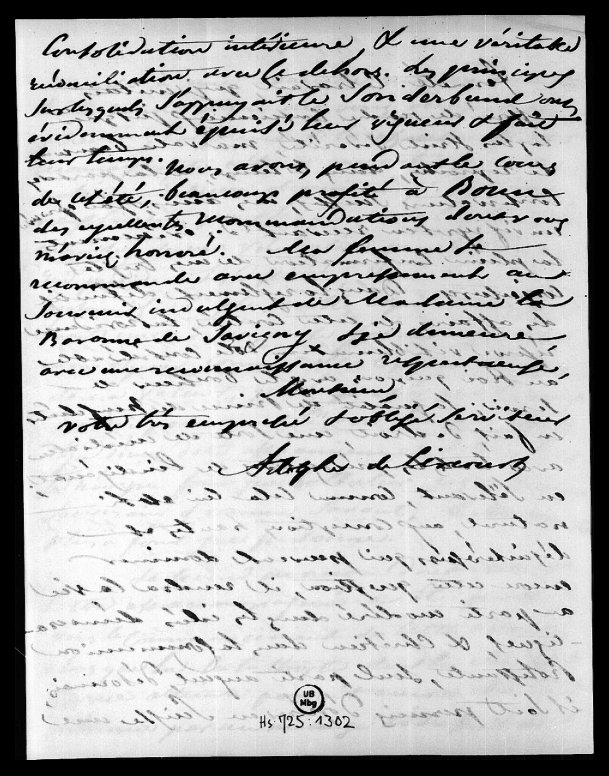 Consolidation intérieure, & une véritable
réconciliation avec le dehors. Les principes
sur lesquels s'appuyait le Sonderbund ont
évidemment épuisé leur vigueur & fait
leur temps.
nous avons, pendant le cours
de cet été, beaucoup profité à Bonn
des excellentes recommandations dont vous
m'aviez honoré. Ma femme se
recommande avec empressement au
Souvenir indulgent de Madame la
Baronne de Savigny & je demeure
avec une reconnaissance respectueuse,
Monsieur,
votre très empressé & obligé serviteur
Adolphe de
UB
Mbg
Hs. 725:1302